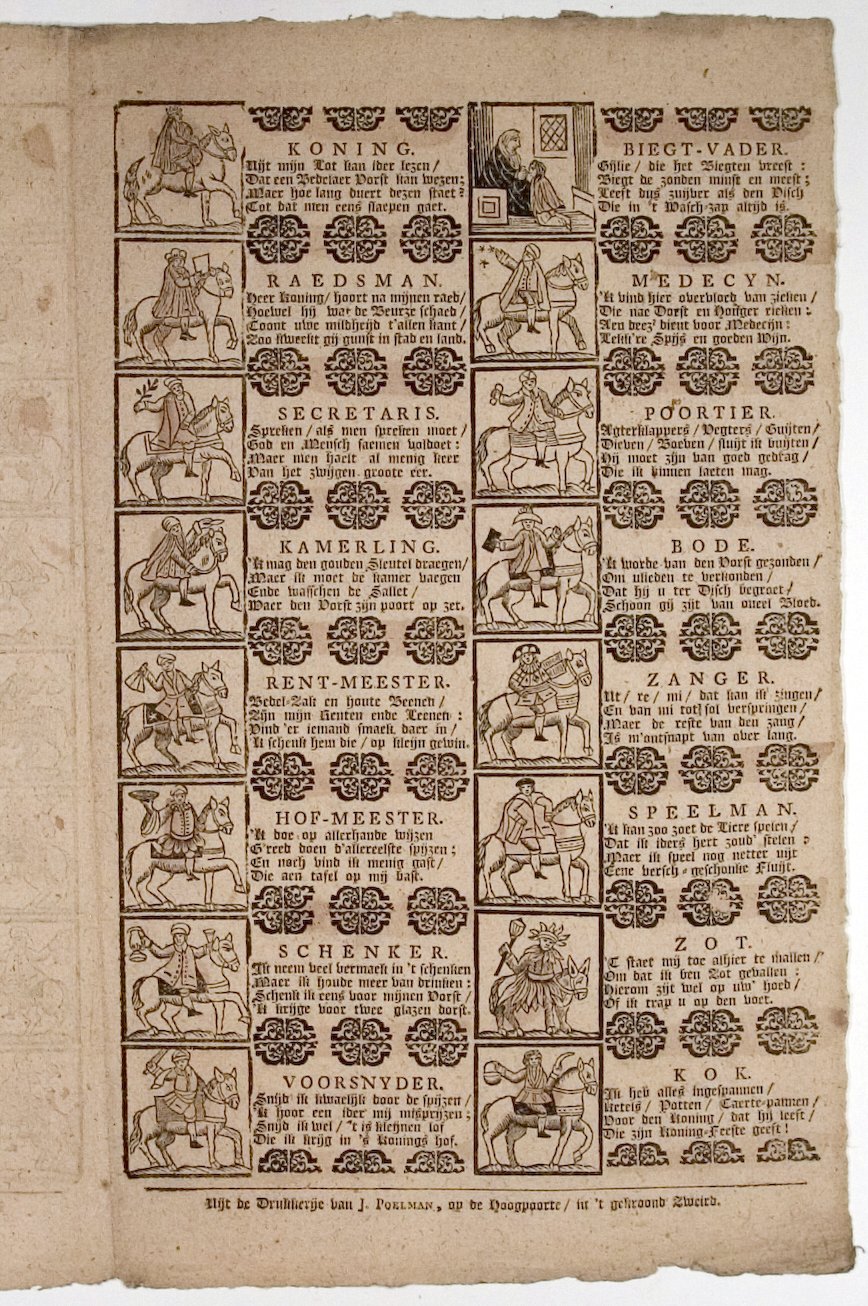 KONING.
Uijt mijn Lot kan ider lezen /
Dat een Bedelaer Vorst kan wezen;
Maer hoe lang duert dezen staet?
Tot dat men eens slaepen gaet.
RAEDSMAN.
Heer Koning / hoort na mijnen raed /
Hoewel hij wat de Beurze schaed /
Toont uwe mildheijd t'allen kant /
Zoo kweekt gij gunst in stad en land.
SECRETARIS.
Spreken / als men spreken moet /
God en Mensch saemen voldoet:
Maer men haelt al menig keer
Van het zwijgen groote eer.
KAMERLING.
'k mag den gouden Sleutel draegen /
Maer ik moet de kamer vaegen
Ende wasschen de Sallet /
Waer den Vorst zijn poort op zet.
RENT-MEESTER.
Bedel-Zak en houte Beenen /
Zijn mijn Renten ende Leenen:
Vind 'er iemand smaek daer in /
Ik schenk hem die / op kleijn gewin.
HOF-MEESTER.
'k doe op allerhande wijzen
G'reed doen d'allereelste spijzen;
En noch vind ik menig gast /
Die aen tafel op mij bast.
SCHENKER.
Ik neem veel vermaek in 't schenken
Maer ik houde meer van drinken:
Schenk ik eens voor mijnen Vorst /
'k krijge voor twee glazen dorst.
VOORSNYDER.
Snijd ik kwaelijk door de spijzen /
'k hoor een ider mij misprijzen;
Snijd ik wel / 't is kleijnen lof
Die ik krijg in 's Konings hof.
BIEGT-VADER.
Gijlie / die het Biegten vreest:
Biegt de zonden minst en meest;
Leeft dus zuijver als den Visch
Die in 't Wasch-zap altijd is.
MEDECYN.
'k vind hier overvloed van zieken /
Die nae Dorst en Honger rieken:
Aen deez' dient voor Medecijn:
Lekk're Spijs en goeden Wijn.
POORTIER.
Agterklappers / Vegters / Guijten /
Dieven / Boeven / sluijt ik buijten /
Hij moet zijn van goed gedrag /
Die ik binnen laeten mag.
BODE.
'k worde van den Vorst gezonden /
Om ulieden te verkonden /
Dat hij u ter Disch begroet /
Schoon gij zijt van oneel Bloed.
ZANGER.
Ut / re / mi / dat kan ik zingen /
En van mi tot sol verspringen /
Maer de reste van den zang /
Is m'ontsnapt van over lang.
SPEELMAN.
'k kan zoo zoet de Liere spelen /
Dat ik iders hert zoud' stelen:
Maer ik speel nog netter uijt
Eene versch-geschonke Fluijt.
ZOT.
'T staet mij toe alhier te mallen /
Om dat ik ben Zot gevallen:
Hierom zijt wel op uw' hoed /
Of ik trap u op den voet.
KOK.
Ik heb alles ingespannen /
Ketels / Potten / Taerte-pannen /
Voor den Koning / dat hij leeft /
Die zijn Koning-Feeste geeft!
Uijt de Drukkerije van J. POELMAN, op de Hoogpoorte / in 't gekroond Zweird.